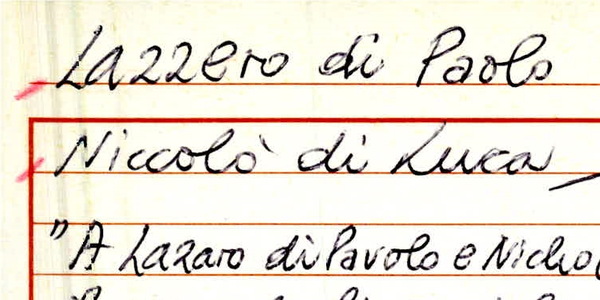 Lazzero di Paolo
Niccolò di Luca
"A Lazaro di Pavolo e Nicho